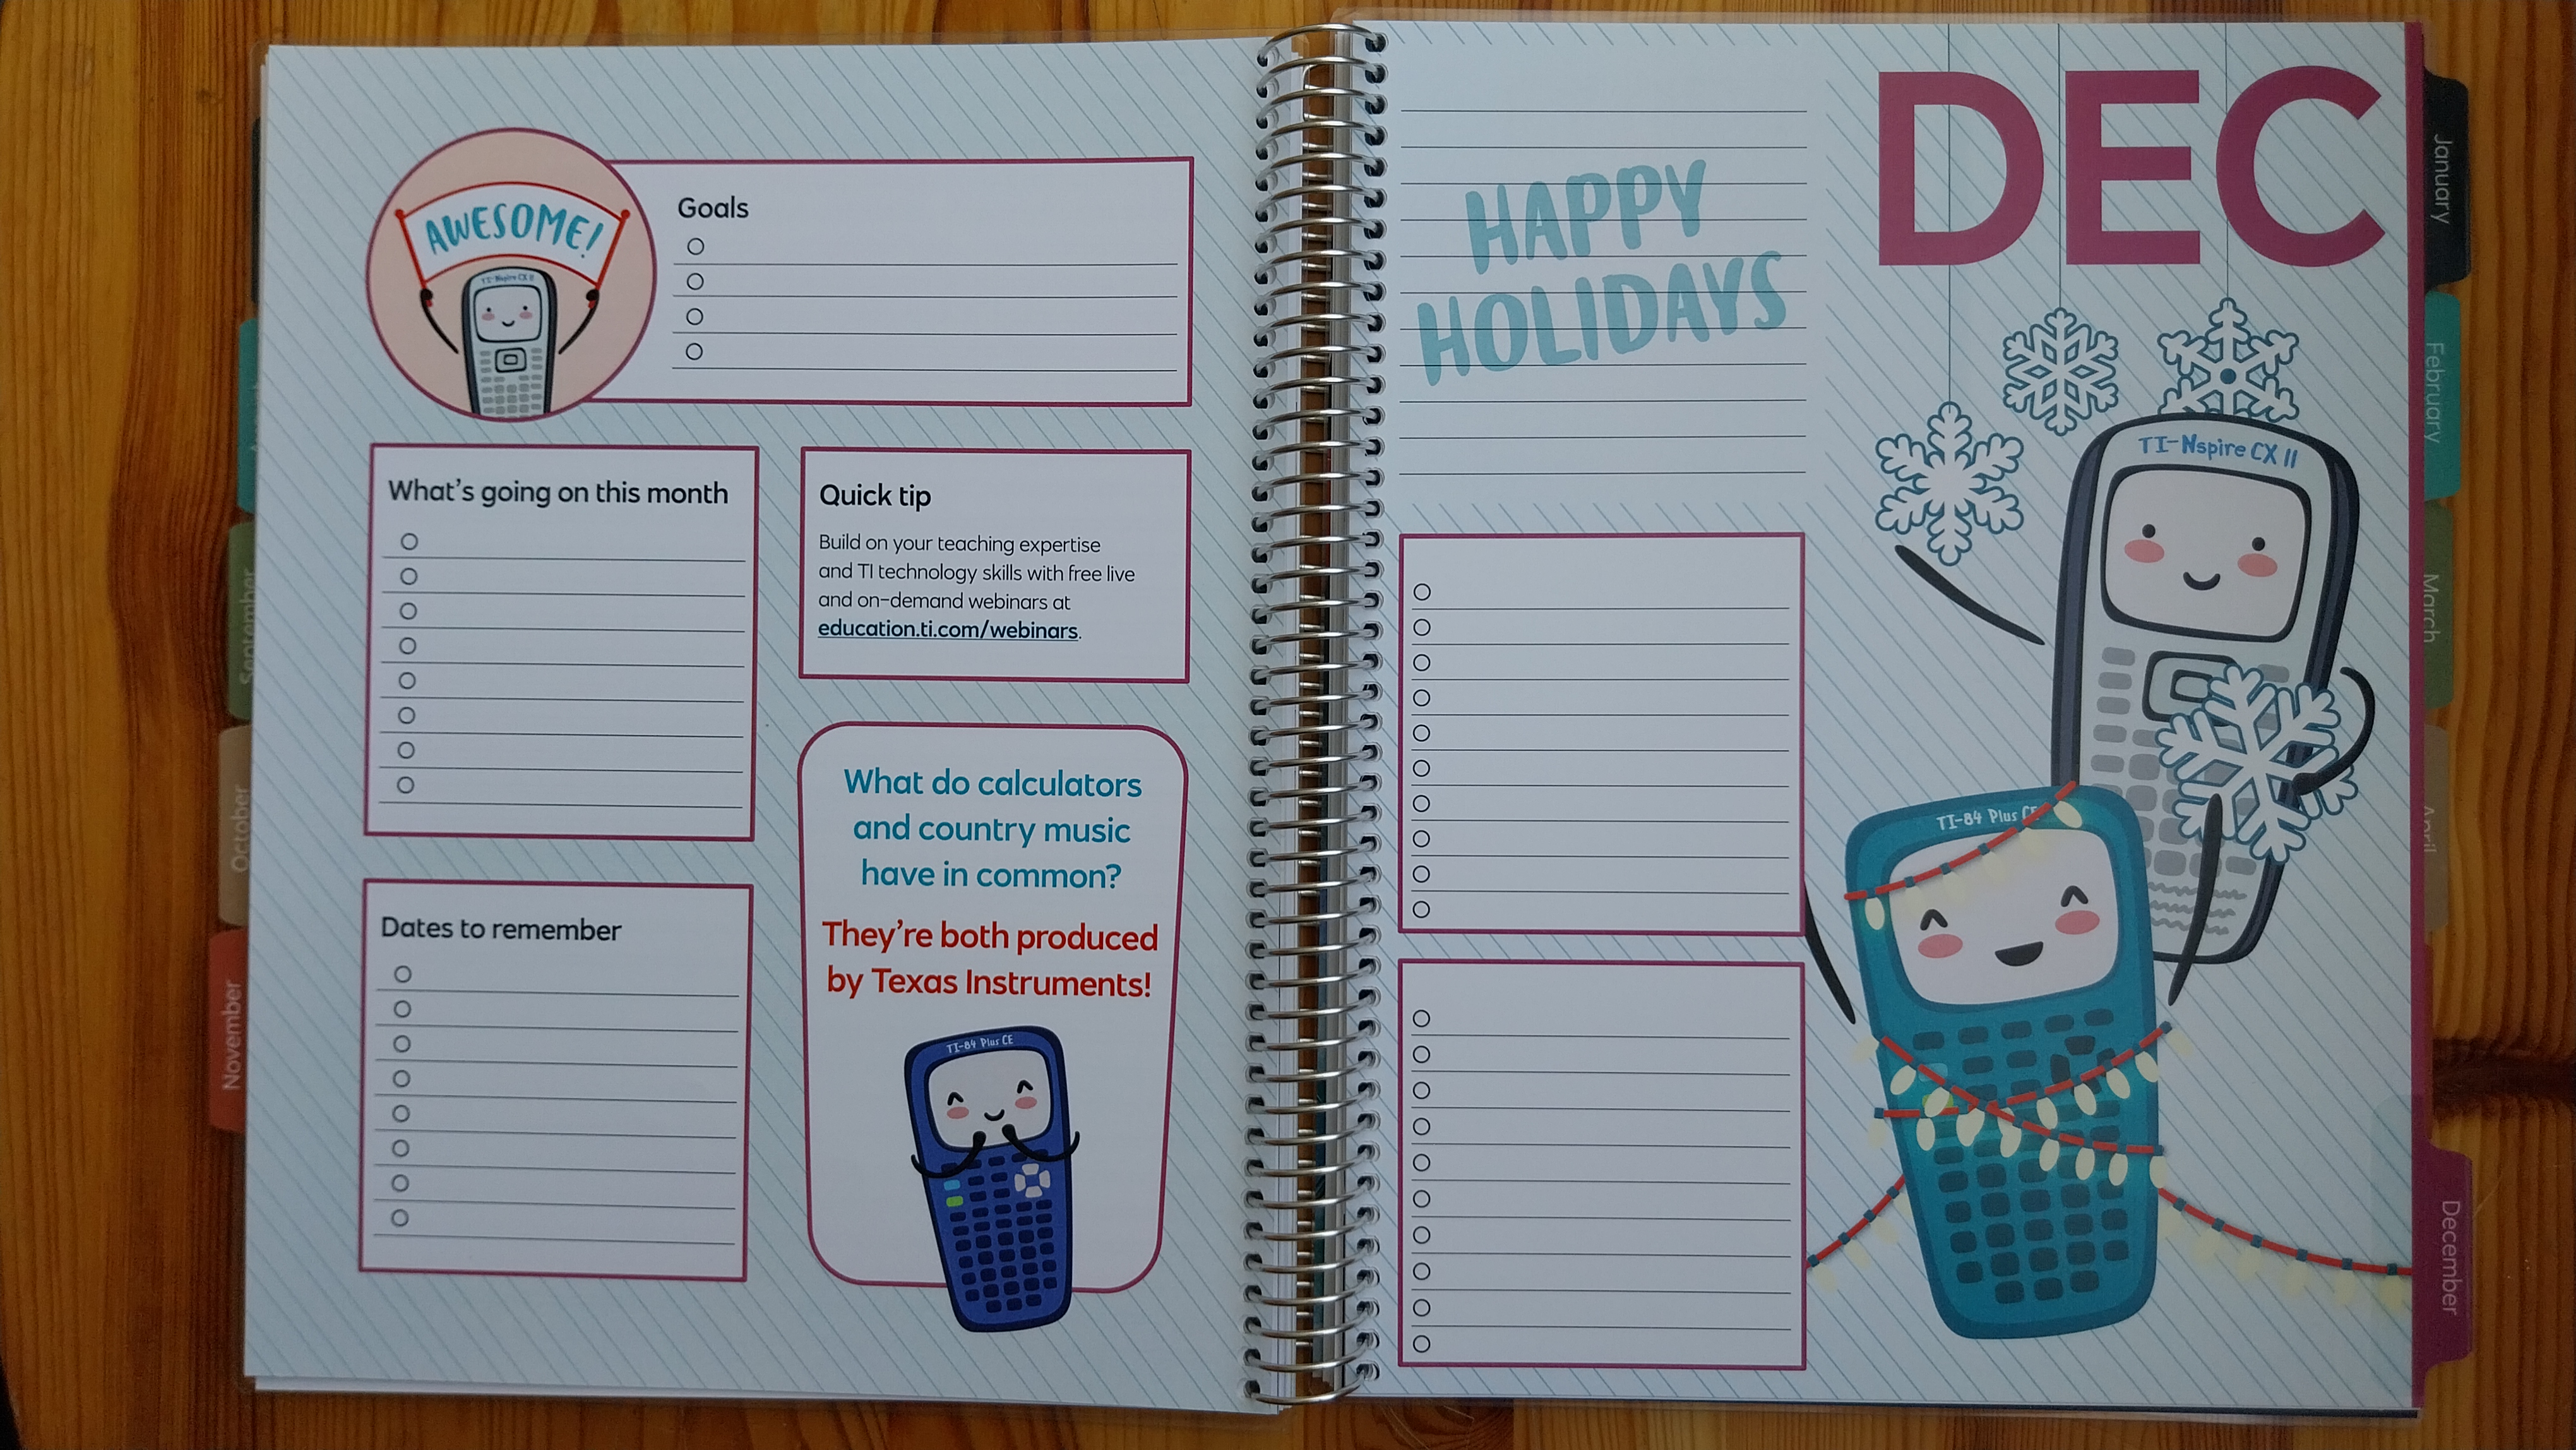 AWESOME!
TI-Nspire CX II
Goals
What's going on this month
Quick tip
Build on your teaching expertise
and TI technology skills with free live
and on-demand webinars at
education.ti.com/webinars.
What do calculators
and country music
have in common?
They're both produced
by Texas Instruments!
TI-84 Plus CE
Dates to remember
September
October
November
HAPPY
HOLIDAYS
DEC
TI-Nspire CX II
TI-84 Plus CE
January
February
March
April
December